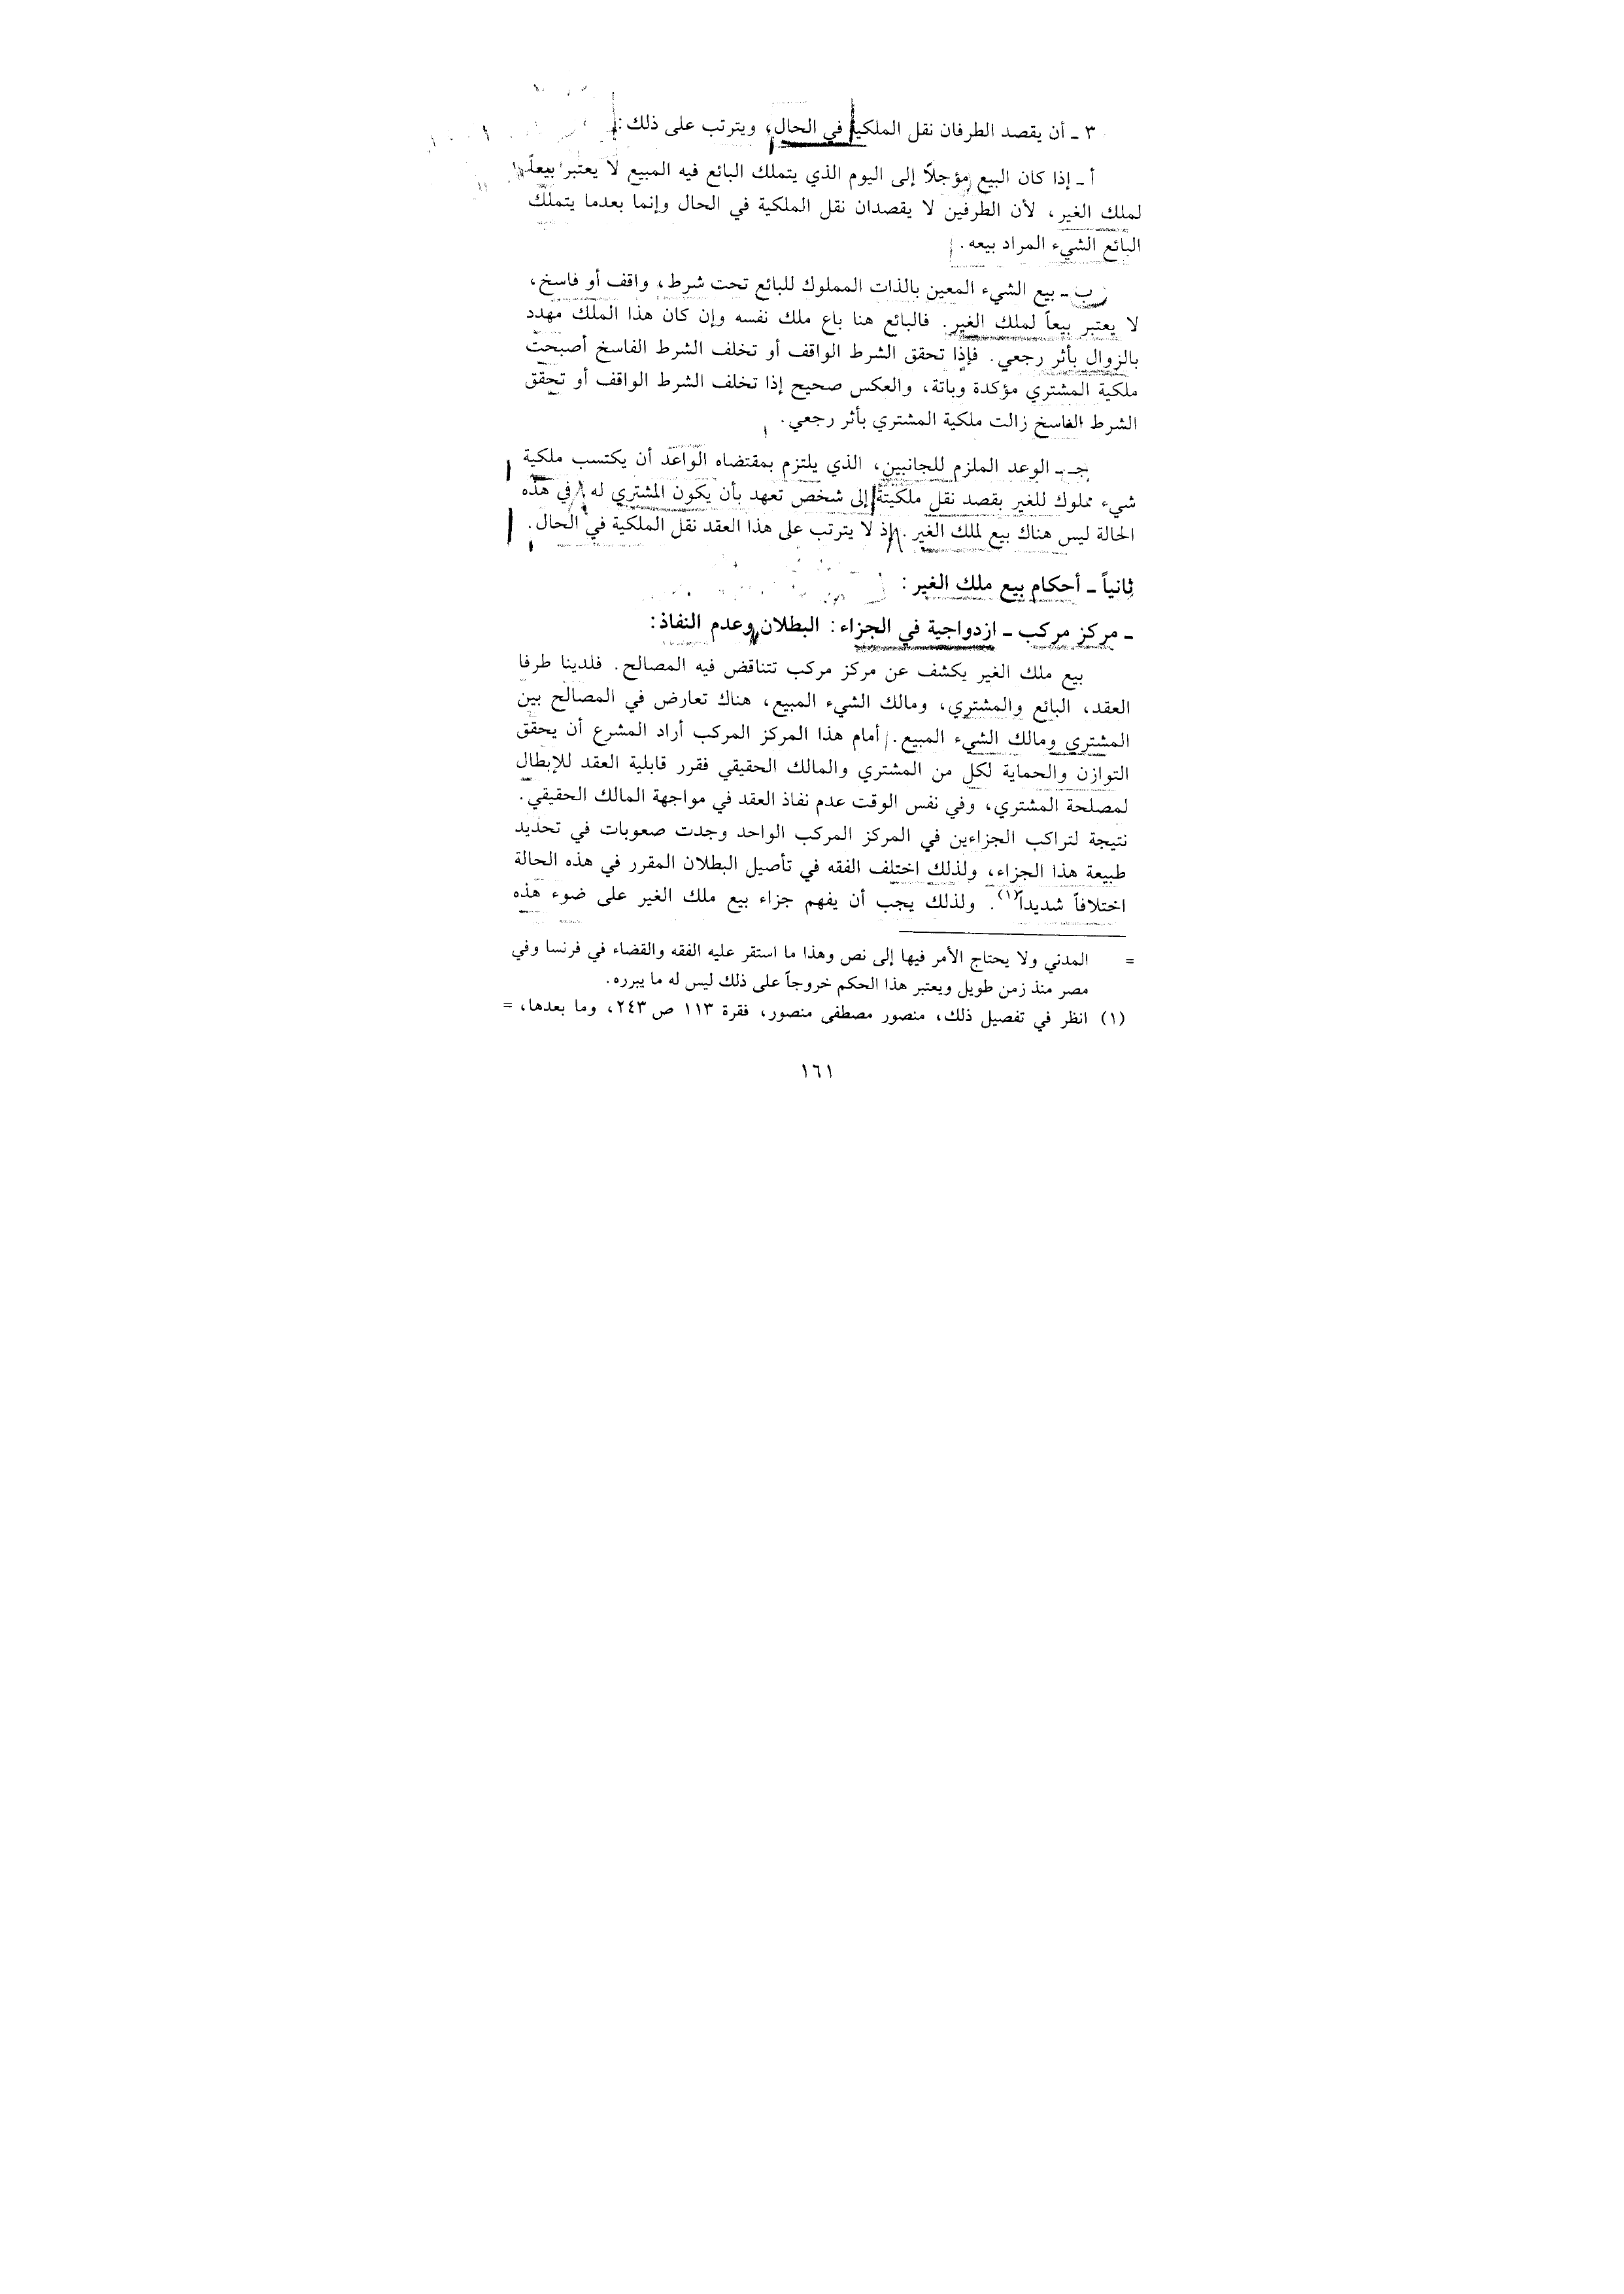 ٣ ـ أن يقصد الطرفان نقل الملكية في الحال، ويترتب على ذلك:
أ ـ إذا كان البيع مؤجلاً إلى اليوم الذي يتملك البائع فيه المبيع لا يعتبر بيعاً
لملك الغير، لأن الطرفين لا يقصدان نقل الملكية في الحال وإنما بعدما يتملك
البائع الشيء المراد بيعه.
ب ـ بيع الشيء المعين بالذات المملوك للبائع تحت شرط، واقف أو فاسخ،
لا يعتبر بيعاً لملك الغير. فالبائع هنا باع ملك نفسه وإن كان هذا الملك مهدد
بالزوال بأثر رجعي. فإذا تحقق الشرط الواقف أو تخلف الشرط الفاسخ أصبحت
ملكية المشتري مؤكدة وباتة، والعكس صحيح إذا تخلف الشرط الواقف أو تحقق
الشرط الفاسخ زالت ملكية المشتري بأثر رجعي.
جـ ـ الوعد الملزم للجانبين، الذي يلتزم بمقتضاه الواعد أن يكتسب ملكية
شيء مملوك للغير بقصد نقل ملكيتة إلى شخص تعهد بأن يكون المشتري له في هذه
الحالة ليس هناك بيع لملك الغير. إذ لا يترتب على هذا العقد نقل الملكية في الحال.
ثانياً ـ أحكام بيع ملك الغير:
ـ مركز مركب ـ ازدواجية في الجزاء: البطلان وعدم النفاذ:
بيع ملك الغير يكشف عن مركز مركب تتناقض فيه المصالح. فلدينا طرفا
العقد، البائع والمشتري، ومالك الشيء المبيع، هناك تعارض في المصالح بين
المشتري ومالك الشيء المبيع. أمام هذا المركز المركب أراد المشرع أن يحقق
التوازن والحماية لكل من المشتري والمالك الحقيقي فقرر قابلية العقد للإبطال
لمصلحة المشتري، وفي نفس الوقت عدم نفاذ العقد في مواجهة المالك الحقيقي.
نتيجة لتراكب الجزاءين في المركز المركب الواحد وجدت صعوبات في تحديد
طبيعة هذا الجزاء، ولذلك اختلف الفقه في تأصيل البطلان المقرر في هذه الحالة
اختلافاً شديداً(١). ولذلك يجب أن يفهم جزاء بيع ملك الغير على ضوء هذه
= المدني ولا يحتاج الأمر فيها إلى نص وهذا ما استقر عليه الفقه والقضاء في فرنسا وفي
مصر منذ زمن طويل ويعتبر هذا الحكم خروجاً على ذلك ليس له ما يبرره.
(١) انظر في تفصيل ذلك، منصور مصطفى منصور، فقرة ١١٣ ص ٢٤٣، وما بعدها، =
١٦١